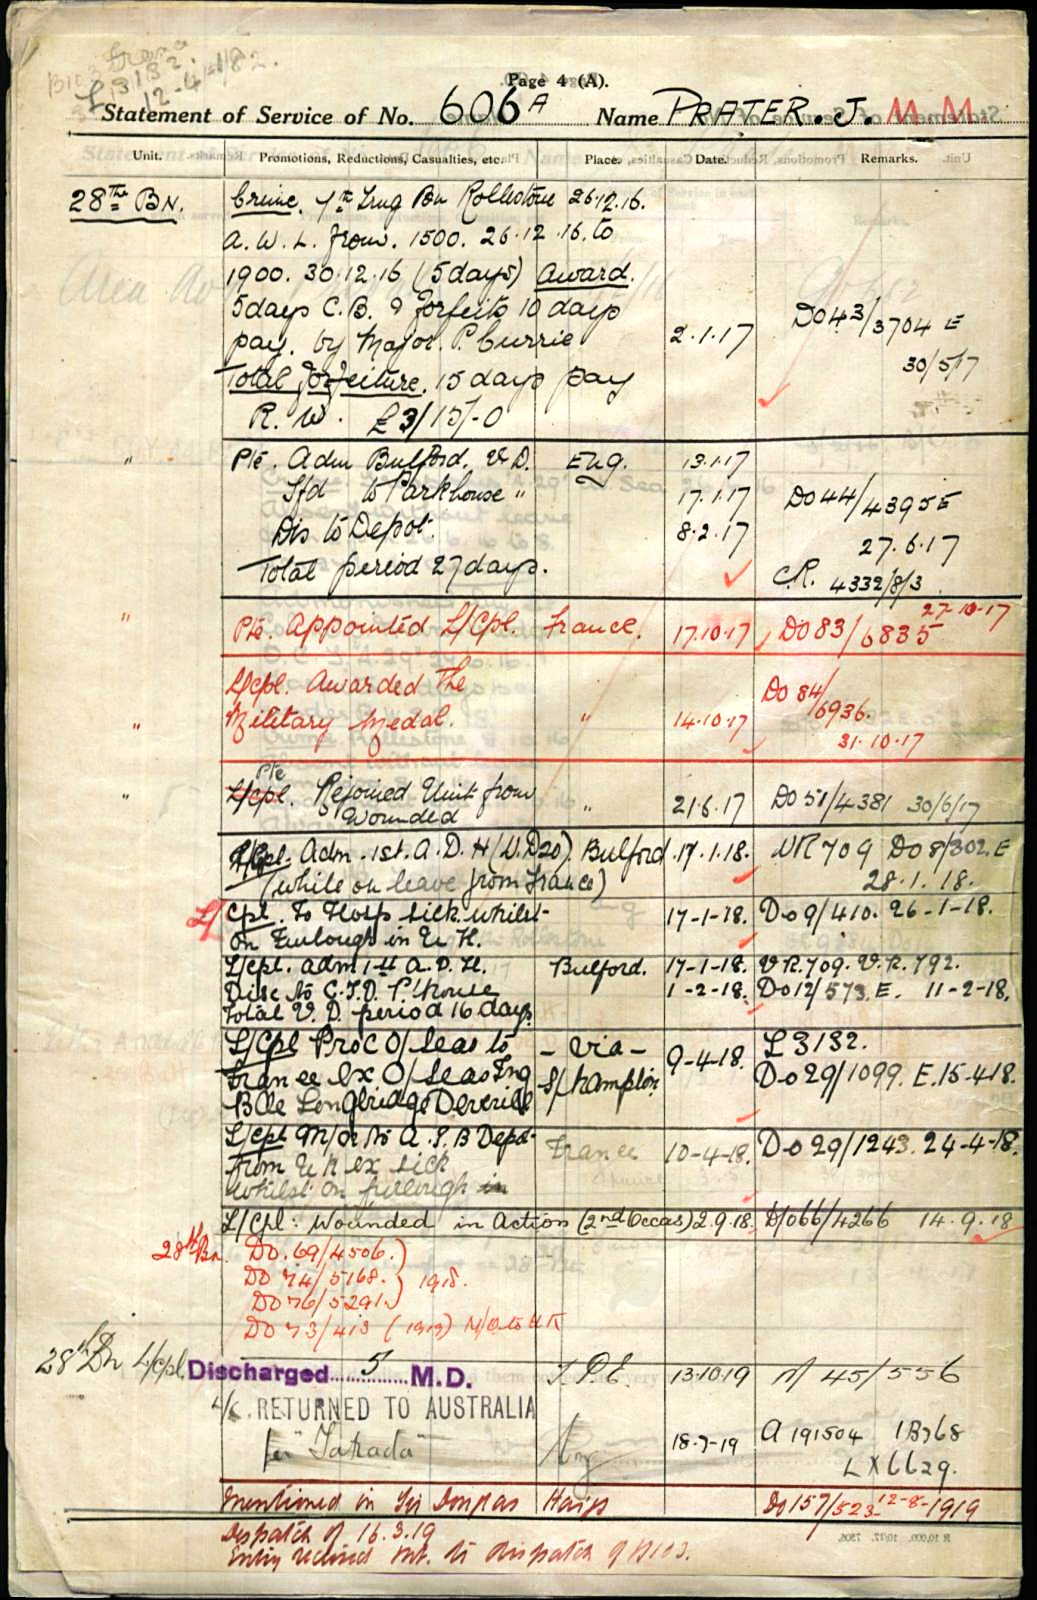 L 3132.
12-4-18
Page 4 (A).
Statement of Service of No. 606A Name PRATER. J. M.M.
Unit. Promotions, Reductions, Casualties, etc. Place. Date. Remarks.
28th BN. Crime. 7th Trng Bn Rollestone 26.12.16.
A.W.L. from. 1500. 26.12.16. to
1900. 30.12.16 (5 days) Award.
5 days C.B. & forfeits 10 days
pay. by Major. P. Currie 2.1.17 DO 43/3704 E
30/5/17
Total forfeiture. 15 days pay
R.W. £3/15/-0
" Pte. Adm Bulford. V.D. Eng. 13.1.17
Tfd to Parkhouse " 17.1.17 DO 44/4395 E
Dis to Depot. 8.2.17 27.6.17
Total period 27 days. C.R. 4332/8/3
" Pte. Appointed L/Cpl. France. 17.10.17 DO 83/6835 27-10-17
L/Cpl. Awarded the DO 84/6936.
" Military Medal. " 14.10.17 31.10.17
Pte
" L/Cpl. Rejoined Unit from " 21.6.17 DO 51/4381 30/6/17
Wounded
L/Cpl. Adm. 1st. A.D.H (V.D 20). Bulford 17.1.18. VR 709 DO 8/302. E
(while on leave from France) 28.1.18.
L/Cpl. To Hosp sick whilst- 17-1-18. Do 9/410. 26-1-18.
on Furlough in U.K.
L/Cpl. adm 1st A.D.H. Bulford. 17-1-18. V.R. 709. V.R. 792.
Disc to C.T.D. P'house 1-2-18. Do 12/573. E. 11-2-18.
Total V.D. period 16 days.
L/Cpl Proc O/Seas to - via - 9-4-18. L 3132.
France ex O/Seas Trng S/hampton Do 29/1099. E. 15-4-18.
Bde Longbridge Deverill
L/Cpl M/o to A.I.B Depot France 10-4-18. Do 29/1243. 24-4-18.
from U K ex sick
whilst on furlough in
L/Cpl: Wounded in Action (2nd Occas) 2.9.18. D/O 66/4266 14.9.18
28th Bn. DO. 69/4506.
DO 74/5168. 1918.
DO 76/5291.
DO 73/413 (1919) M/O to U K
28th Bn L/Cpl. Discharged 5 M.D. T.P.E. 13.10.19 N 45/556
RETURNED TO AUSTRALIA
per "Takada" 18-7-19 A 191504 1B768
LX6629.
Mentioned in Sir Douglas Haigs Do 157/523 12-8-1919
Dispatch of 16.3.19
Entry received to dispatch of B103.